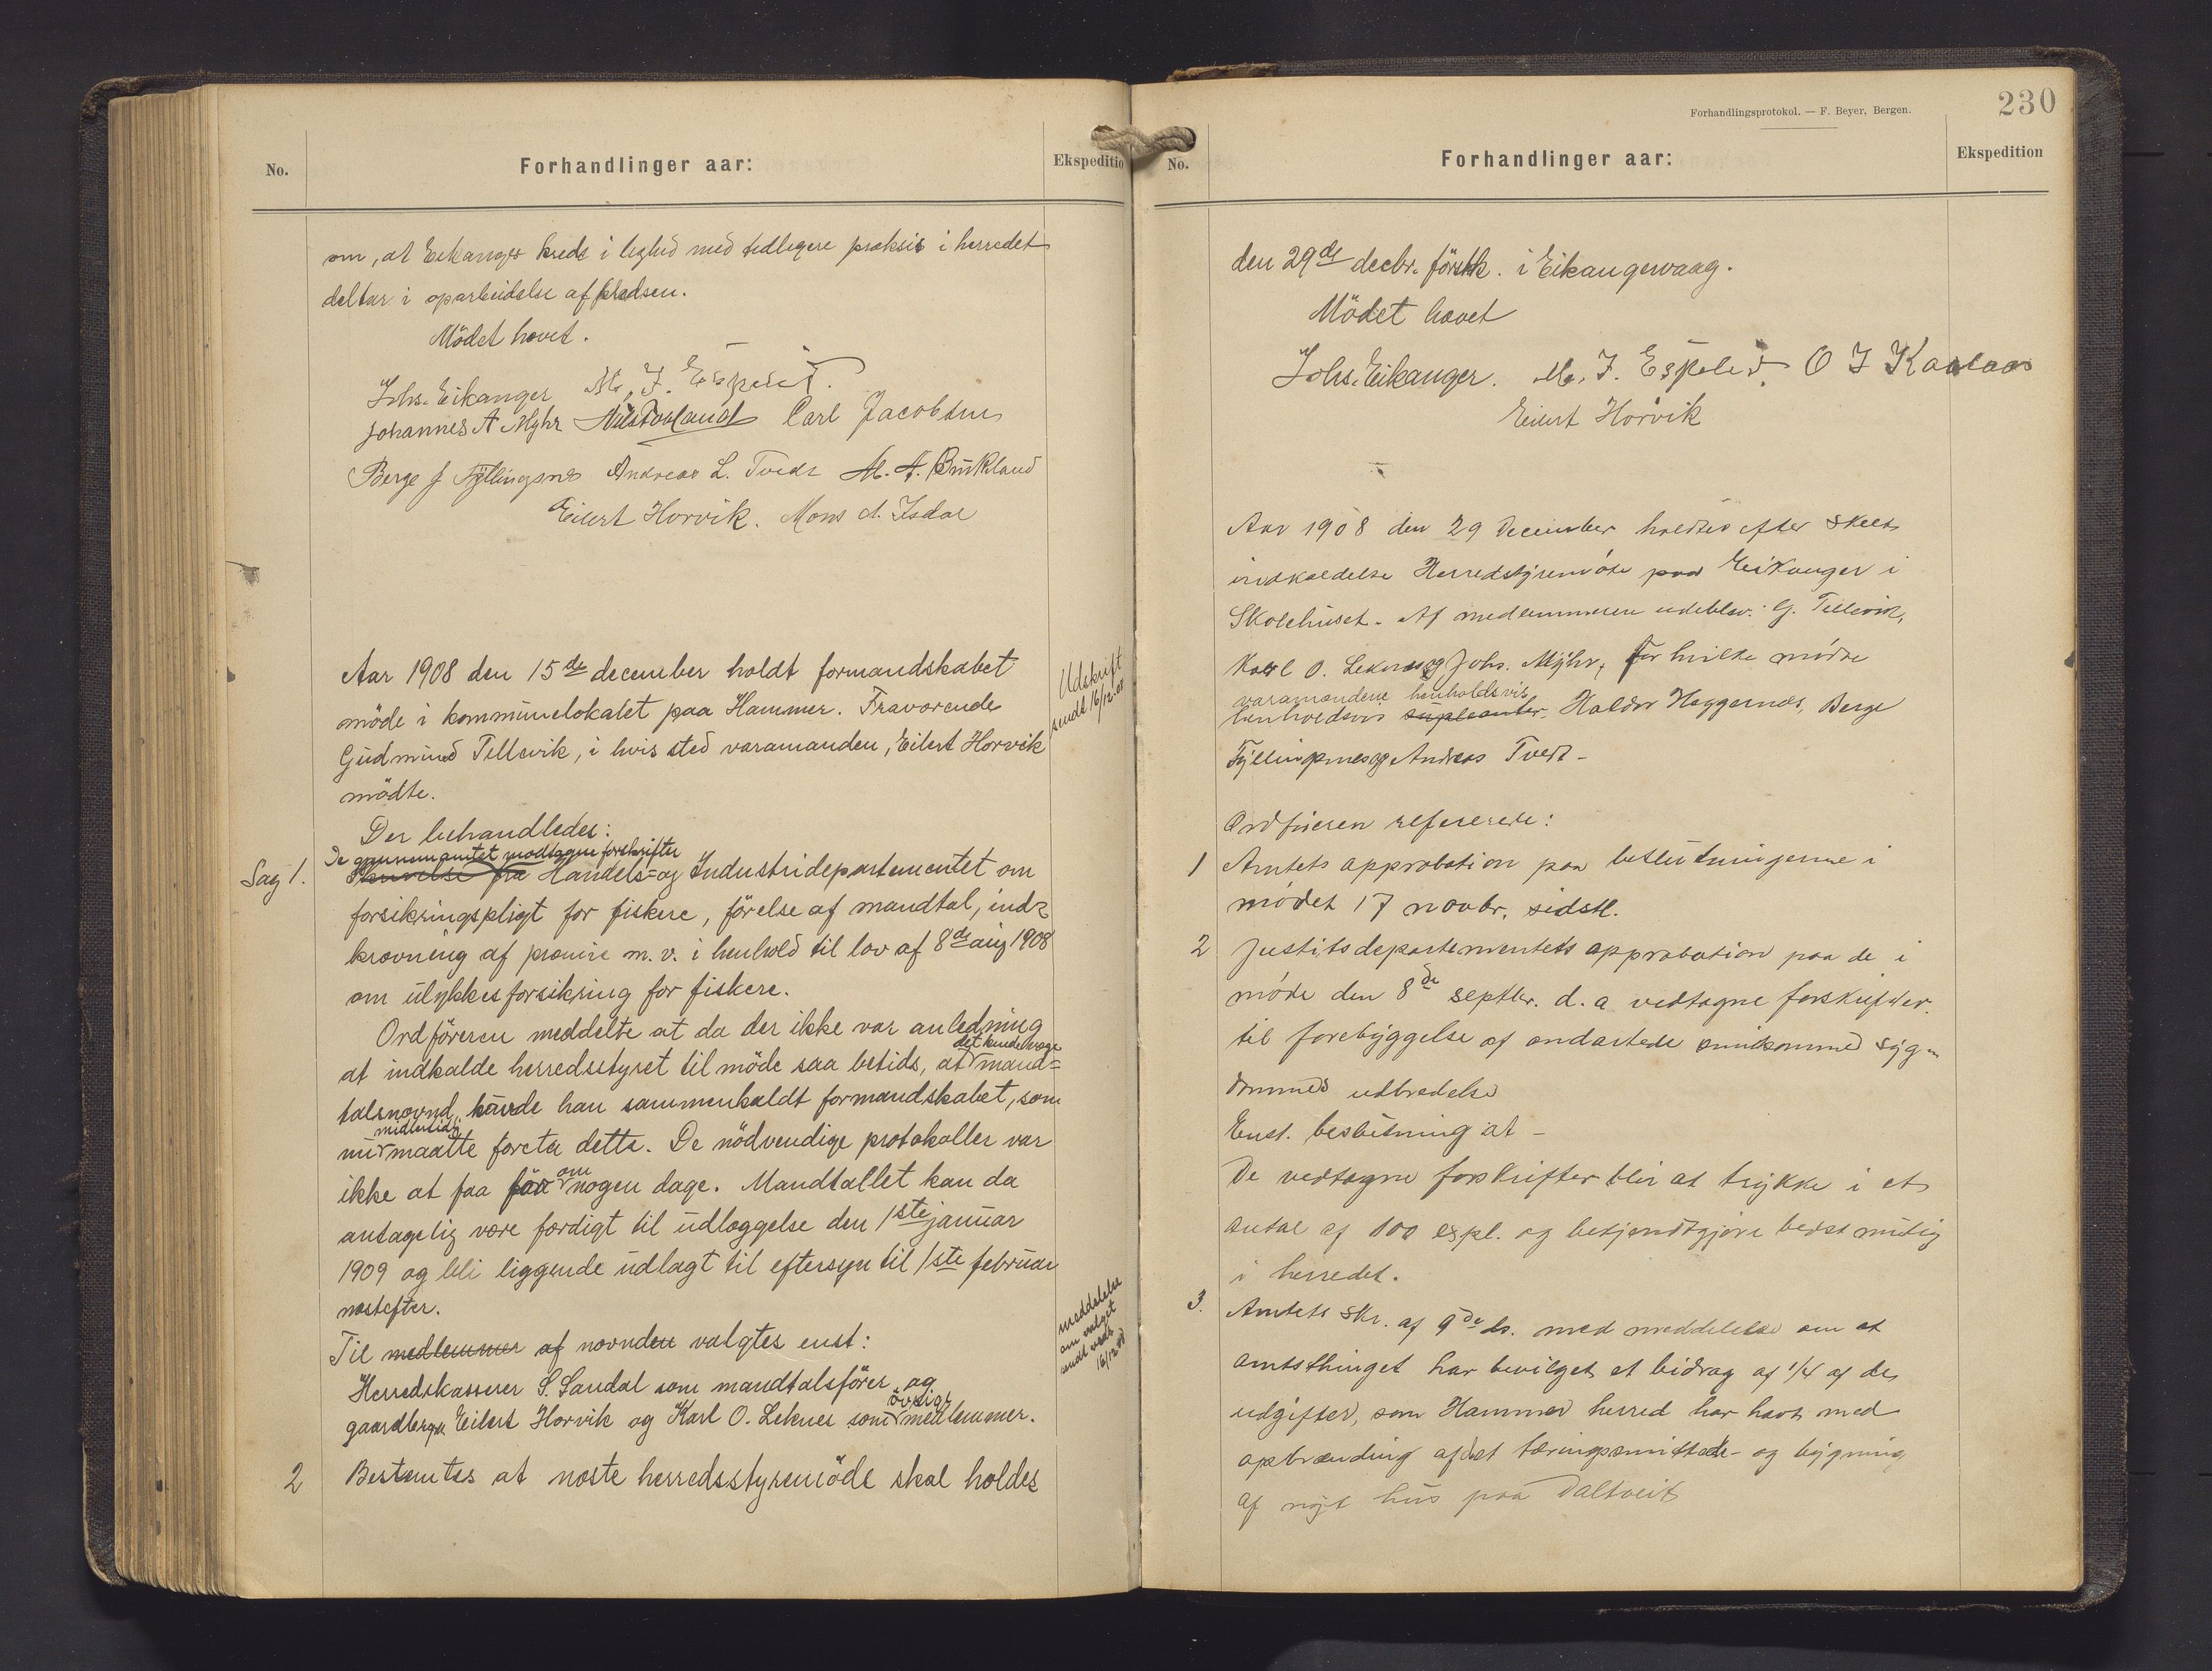 No.
Forhandlinger aar:
Ekspeditio
om, at Eikanger kreds i lighed med tidligere praksis i herredet
deltar i oparbeidelse af pladsen.
Mödet hævet.
Johs. Eikanger M. J. Espelid.
Johannes A Myhr Carl Jacobsen
Berge J Fyllingsnes Andreas L. Tvedt A. A. Birkland
Eilert Horvik. Mons A. Isdal
Aar 1908 den 15de december holdt formandskabet
möde i kommunelokalet paa Hammer. Fraværende
Gudmund Tellevik, i hvis sted varamanden, Eilert Horvik
mödte.
Udskrift
sendt 16/12.08
Der behandledes:
De gjennem amtet modtagne forskrifter
Sag 1. Skrivelse fra Handels- og Industridepartementet om
forsikringspligt for fiskere, förelse af mandtal, ind-
krævning af præmie m. v. i henhold til lov af 8de aug 1908
om ulykkesforsikring for fiskere.
Ordföreren meddelte at da der ikke var anledning
det kunde vælge
at indkalde herredsstyret til möde saa betids, at mand-
talsnævnd, havde han sammenkaldt formandskabet, som
midlertidig
nu maatte foreta dette. De nödvendige protokoller var
om
ikke at faa för nogen dage. Mandtallet kan da
antagelig være færdigt til udlæggelse den 1ste januar
1909 og bli liggende udlagt til eftersyn til 1ste februar
næstefter.
Til medlemmer af nævnden valgtes enst:
meddelelse
om valget
sendt vedk.
16/12 08
Herredskasserer S. Sandal som mandtalsförer og
övrige
gaardbrgr. Eilert Horvik og Karl O. Leknes som medlemmer.
2 Bestemtes at næste herredsstyremöde skal holdes
Forhandlingsprotokol. — F. Beyer, Bergen.
230
No.
Forhandlinger aar:
Ekspedition
den 29de decbr. förstk. i Eikangervaag.
Mödet hævet
Johs. Eikanger. M. J. Espelid. O J Kaalaas
Eilert Horvik
Aar 1908 den 29 December holdtes efter skeet
indkaldelse Herredstyremöte paa Eikanger i
Skolehuset. Af medlemmerne udeblev: G. Tellevik,
Karl O. Leknes og Johs. Myhr, for hvilke mödte
varamændene henholdsvis
henholdsvis supleanter. Haldor Hæggernæs, Berge
Fyllingsnes og Andreas Tvedt -
Ordföreren refererede:
1 Amtets approbation paa beslutningerne i
mödet 17 novbr. sidstl.
2 Justitsdepartementets approbation paa de i
möde den 8de septbr. d. a. vedtagne forskrifter
til forebyggelse af ondartede smitsomme syg-
dommes udbredelse
Enst. beslutning at -
De vedtagne forskrifter blir at trykke i et
antal af 100 expl. og bekjendtgjöre bedst mulig
i herredet.
3. Amtets skr. af 9de ds. med meddelelse om at
amtsthinget har bevilget et bidrag af 1/4 af de
udgifter, som Hammer herred har havt med
opbrænding af det tæringssmittede- og bygning
af nyt hus paa Daltveit